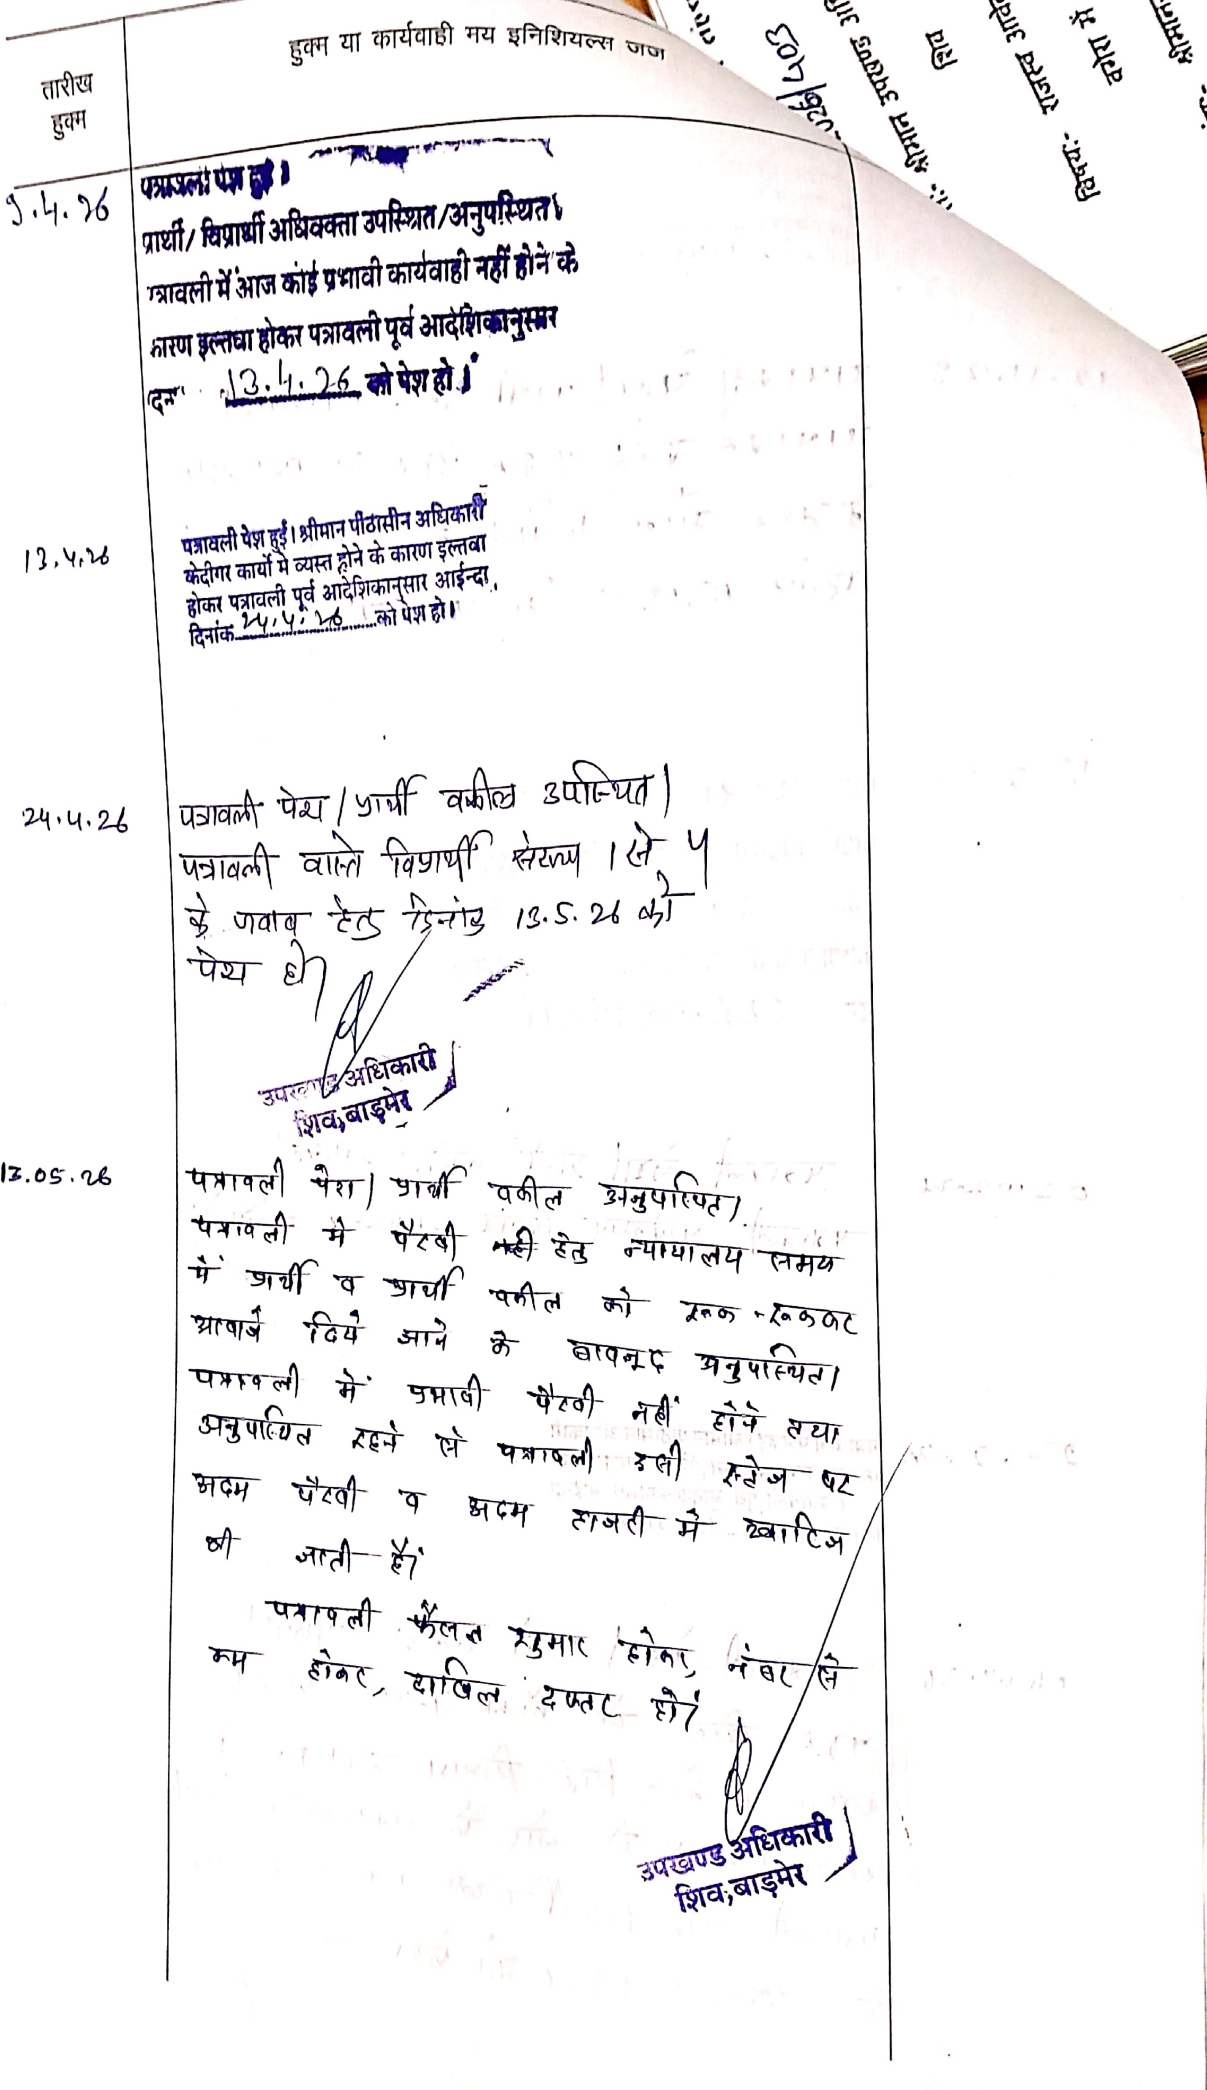 हुक्म या कार्यवाही मय इनिशियल्स जज
तारीख
हुक्म
9.4.26
पत्रावली पेश हुई।
प्रार्थी/विप्रार्थी अधिवक्ता उपस्थित/अनुपस्थित।
त्रावली में आज कोई प्रभावी कार्यवाही नहीं होने के
कारण इल्तवा होकर पत्रावली पूर्व आदेशिकानुसार
दिनां 13.4.26 को पेश हो।
13.4.26
पत्रावली पेश हुई। श्रीमान पीठासीन अधिकारी
के दीगर कार्यो मे व्यस्त होने के कारण इल्तवा
होकर पत्रावली पूर्व आदेशिकानुसार आईन्दा
दिनांक 24.4.26 को पेश हो।
24.4.26
पत्रावली पेश। प्रार्थी वकील उपस्थित।
पत्रावली वास्ते विप्रार्थी संख्या 1 से 4
के जवाब हेतु दिनांक 13.5.26 को
पेश हो।
उपखण्ड अधिकारी
शिव, बाड़मेर
13.05.26
पत्रावली पेश। प्रार्थी वकील अनुपस्थित।
पत्रावली मे पैरवी हेतु न्यायालय समय
मे प्रार्थी व प्रार्थी वकील को रूक-रूककर
आवाजे दिये जाने के बावजूद अनुपस्थित।
पत्रावली में प्रभावी पैरवी नहीं होने तथा
अनुपस्थित रहने से पत्रावली इसी स्टेज पर
अदम पैरवी व अदम हाजरी मे खारिज
की जाती है।
पत्रावली फैसल शुमार होकर, नंबर से
कम होकर, दाखिल दफ्तर हो।
उपखण्ड अधिकारी
शिव, बाड़मेर
026/403
श्रीमान उपखण्ड अ
शिव
विषय:- राजस्व आवे
करने में
श्रीमान